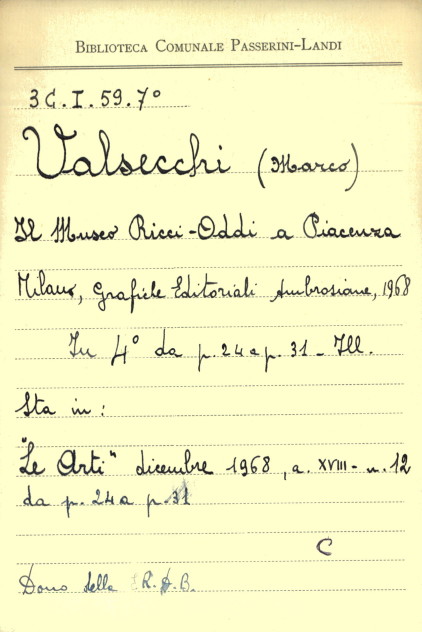 Biblioteca Comunale Passerini-Landi
3G.I.59.7°
Valsecchi (Marco)
Il Museo Ricci-Oddi a Piacenza
Milano, Grafiche Editoriali Ambrosiane, 1968
In 4° da p. 24 a p. 31 - Ill.
Sta in:
"Le Arti" dicembre 1968, a. XVIII - n. 12
da p. 24 a p. 31
C
Dono della R.D.B.